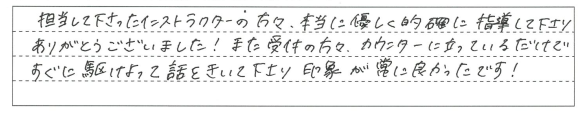 担当して下さったインストラクターの方々、本当に優しく的確に指導して下さり
ありがとうございました！また受付の方々、カウンターに立っているだけで
すぐに駆けよって話をきいて下さり印象が常に良かったです！